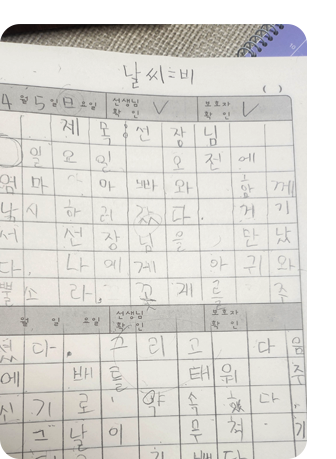 날씨=비
( )
4 월 5 일 요일 선생님 확인 ✓ 보호자 확인 ✓
제목: 선장님
일요일 오전에
엄마 아빠와 함께
낚시하러 갔다. 거기
서 선장님을 만났
다. 나에게 아귀와
뿔소라, 꽃게를 주
월 일 요일 선생님 확인 보호자 확인
셨다. 그리고 다음
에 배를 태워주
신기로 약속했다.
그날이 무척 기